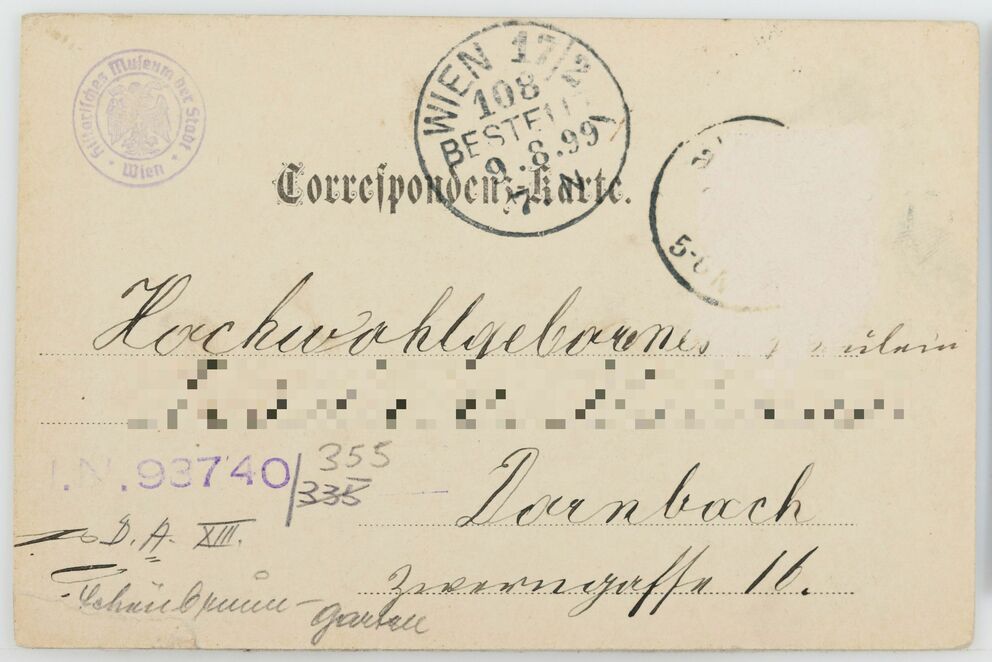 Historisches Museum der Stadt
Wien
WIEN 17/2
108
BESTELLT
9.8.99
7. N
Correspondenz-Karte.
5-6 N
Hochwohlgebornes
Dornbach
Zwerngasse 16.
I.N. 93740/355
335
D. A. XIII.
Schönbrunn-
garten